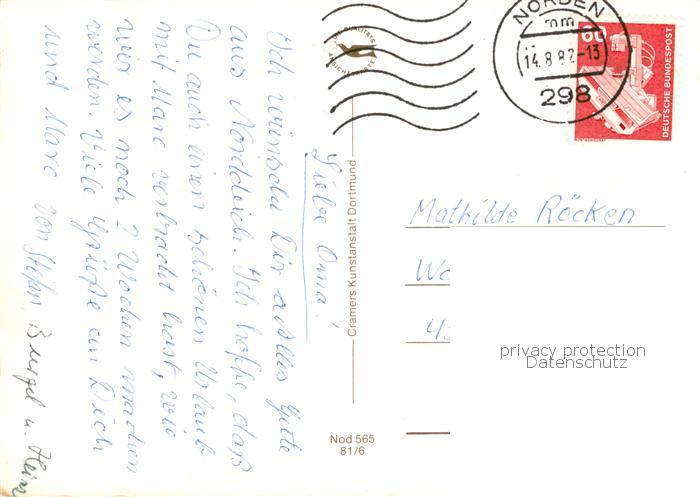 Liebe Oma!
Ich wünsche Dir alles Gute
aus Norddeich. Ich hoffe, daß
Du auch einen schönen Urlaub
mit Marc verbracht hast, wie
wir es noch 2 Wochen machen
werden. Viele Grüße an Dich
und Marc von Stefan, Burgel u. Heinz
Cramers Kunstanstalt Dortmund
Nod 565
81/6
NORDEN
mm
14.8.82-13
298
60
DEUTSCHE BUNDESPOST
Mathilde Röcken
privacy protection
Datenschutz